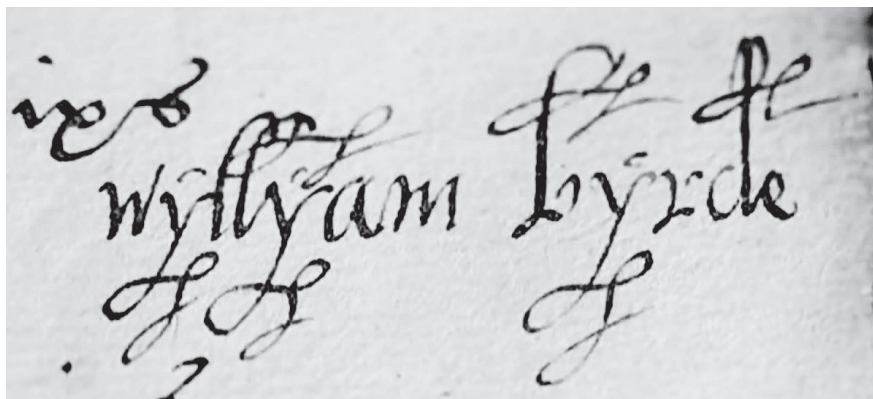 wyllyam byrde